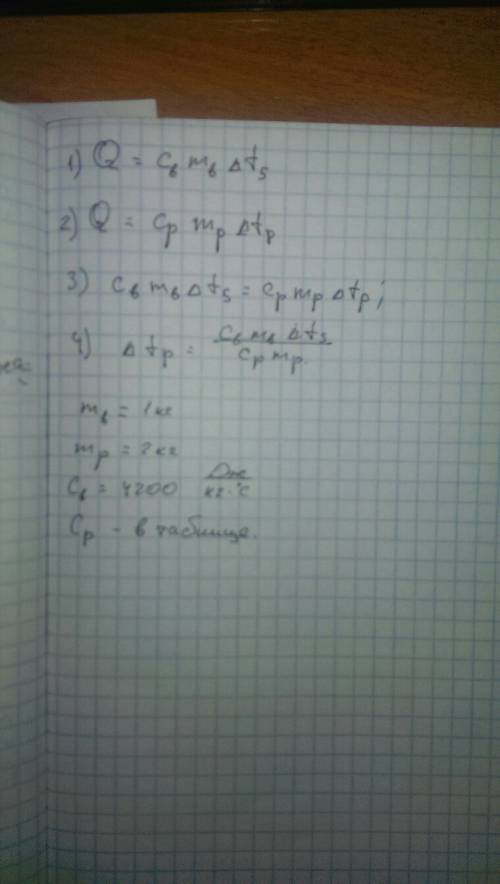 1) Q = cв mв Δt5
2) Q = cр mр Δtр
3) cв mв Δt5 = cр mр Δtр;
4) Δtр = cв mв Δt5 / cр mр.
mв = 1 кг
mр = 2 кг
cв = 4200 Дж / кг·°C
cр - в таблице.